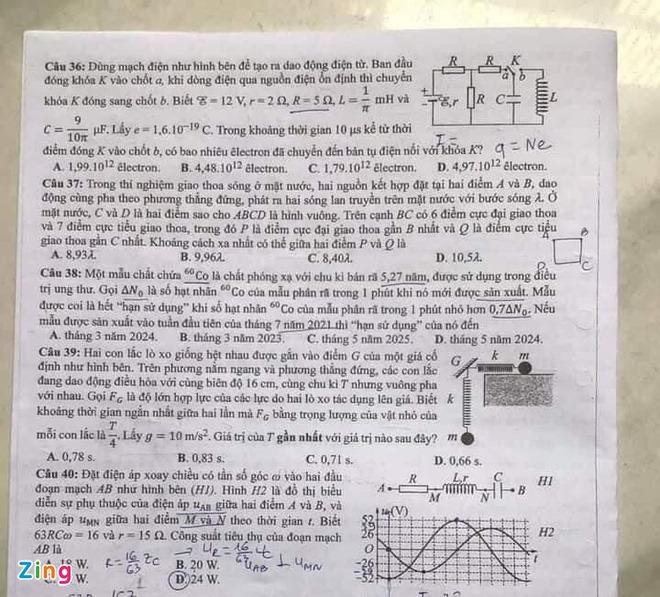 Câu 36: Dùng mạch điện như hình bên để tạo ra dao động điện từ. Ban đầu
đóng khóa K vào chốt a, khi dòng điện qua nguồn điện ổn định thì chuyển
khóa K đóng sang chốt b. Biết ℰ = 12 V, r = 2 Ω, R = 5 Ω, L = 1/π mH và
C = 9/10π μF. Lấy e = 1,6.10⁻¹⁹ C. Trong khoảng thời gian 10 μs kể từ thời
điểm đóng K vào chốt b, có bao nhiêu êlectron đã chuyển đến bản tụ điện nối với khóa K?
A. 1,99.10¹² êlectron. B. 4,48.10¹² êlectron. C. 1,79.10¹² êlectron. D. 4,97.10¹² êlectron.
R R K
a b
+ −
ℰ,r R C L
I =
q = Ne
Câu 37: Trong thí nghiệm giao thoa sóng ở mặt nước, hai nguồn kết hợp đặt tại hai điểm A và B, dao
động cùng pha theo phương thẳng đứng, phát ra hai sóng lan truyền trên mặt nước với bước sóng λ. Ở
mặt nước, C và D là hai điểm sao cho ABCD là hình vuông. Trên cạnh BC có 6 điểm cực đại giao thoa
và 7 điểm cực tiểu giao thoa, trong đó P là điểm cực đại giao thoa gần B nhất và Q là điểm cực tiểu
giao thoa gần C nhất. Khoảng cách xa nhất có thể giữa hai điểm P và Q là
A. 8,93λ. B. 9,96λ. C. 8,40λ. D. 10,5λ.
A B
D C
Câu 38: Một mẫu chất chứa ⁶⁰Co là chất phóng xạ với chu kì bán rã 5,27 năm, được sử dụng trong điều
trị ung thư. Gọi ΔN₀ là số hạt nhân ⁶⁰Co của mẫu phân rã trong 1 phút khi nó mới được sản xuất. Mẫu
được coi là hết "hạn sử dụng" khi số hạt nhân ⁶⁰Co của mẫu phân rã trong 1 phút nhỏ hơn 0,7ΔN₀. Nếu
mẫu được sản xuất vào tuần đầu tiên của tháng 7 năm 2021 thì "hạn sử dụng" của nó đến
A. tháng 3 năm 2024. B. tháng 3 năm 2023. C. tháng 5 năm 2025. D. tháng 5 năm 2024.
Câu 39: Hai con lắc lò xo giống hệt nhau được gắn vào điểm G của một giá cố
định như hình bên. Trên phương nằm ngang và phương thẳng đứng, các con lắc
đang dao động điều hòa với cùng biên độ 16 cm, cùng chu kì T nhưng vuông pha
với nhau. Gọi F_G là độ lớn hợp lực của các lực do hai lò xo tác dụng lên giá. Biết
khoảng thời gian ngắn nhất giữa hai lần mà F_G bằng trọng lượng của vật nhỏ của
mỗi con lắc là T/4. Lấy g = 10 m/s². Giá trị của T gần nhất với giá trị nào sau đây?
A. 0,78 s. B. 0,83 s. C. 0,71 s. D. 0,66 s.
G k m
k
m
Câu 40: Đặt điện áp xoay chiều có tần số góc ω vào hai đầu
đoạn mạch AB như hình bên (H1). Hình H2 là đồ thị biểu
diễn sự phụ thuộc của điện áp u_AB giữa hai điểm A và B, và
điện áp u_MN giữa hai điểm M và N theo thời gian t. Biết
63RCω = 16 và r = 15 Ω. Công suất tiêu thụ của đoạn mạch
AB là
B. 20 W.
W. D. 24 W.
R L,r C H1
A M N B
u(V)
52
39
26
O t
−26
−52
H2
R = 16/63 Zc
→ u_R = 16/63 u_C
u_AB ⊥ u_MN
Zing